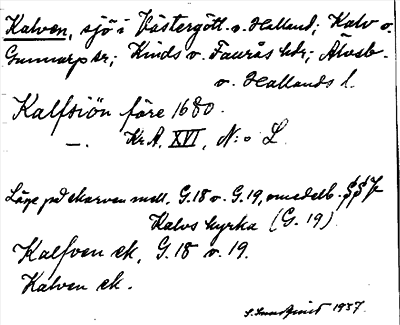 Kalven, sjö i Västergötl. o. Halland; Kalv o.
Gunnarp sr; Kinds o. Faurås hdr; Älvsb.
o. Hallands l.
Kalfsiön före 1680.
—. Kr.A. XVI, N:o L.
Läge på skarven mell. G.18 o. G.19, omedelb.
Kalvs kyrka (G. 19)
Kalfven ek, G.18 o. 19.
Kalven ek.
1937.